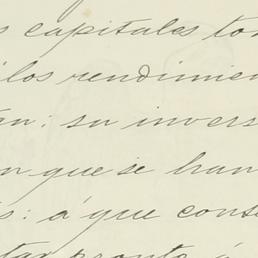 s capitales to
los rendimien
an: su invers
n que se han
s: á que cons
tar pronto á